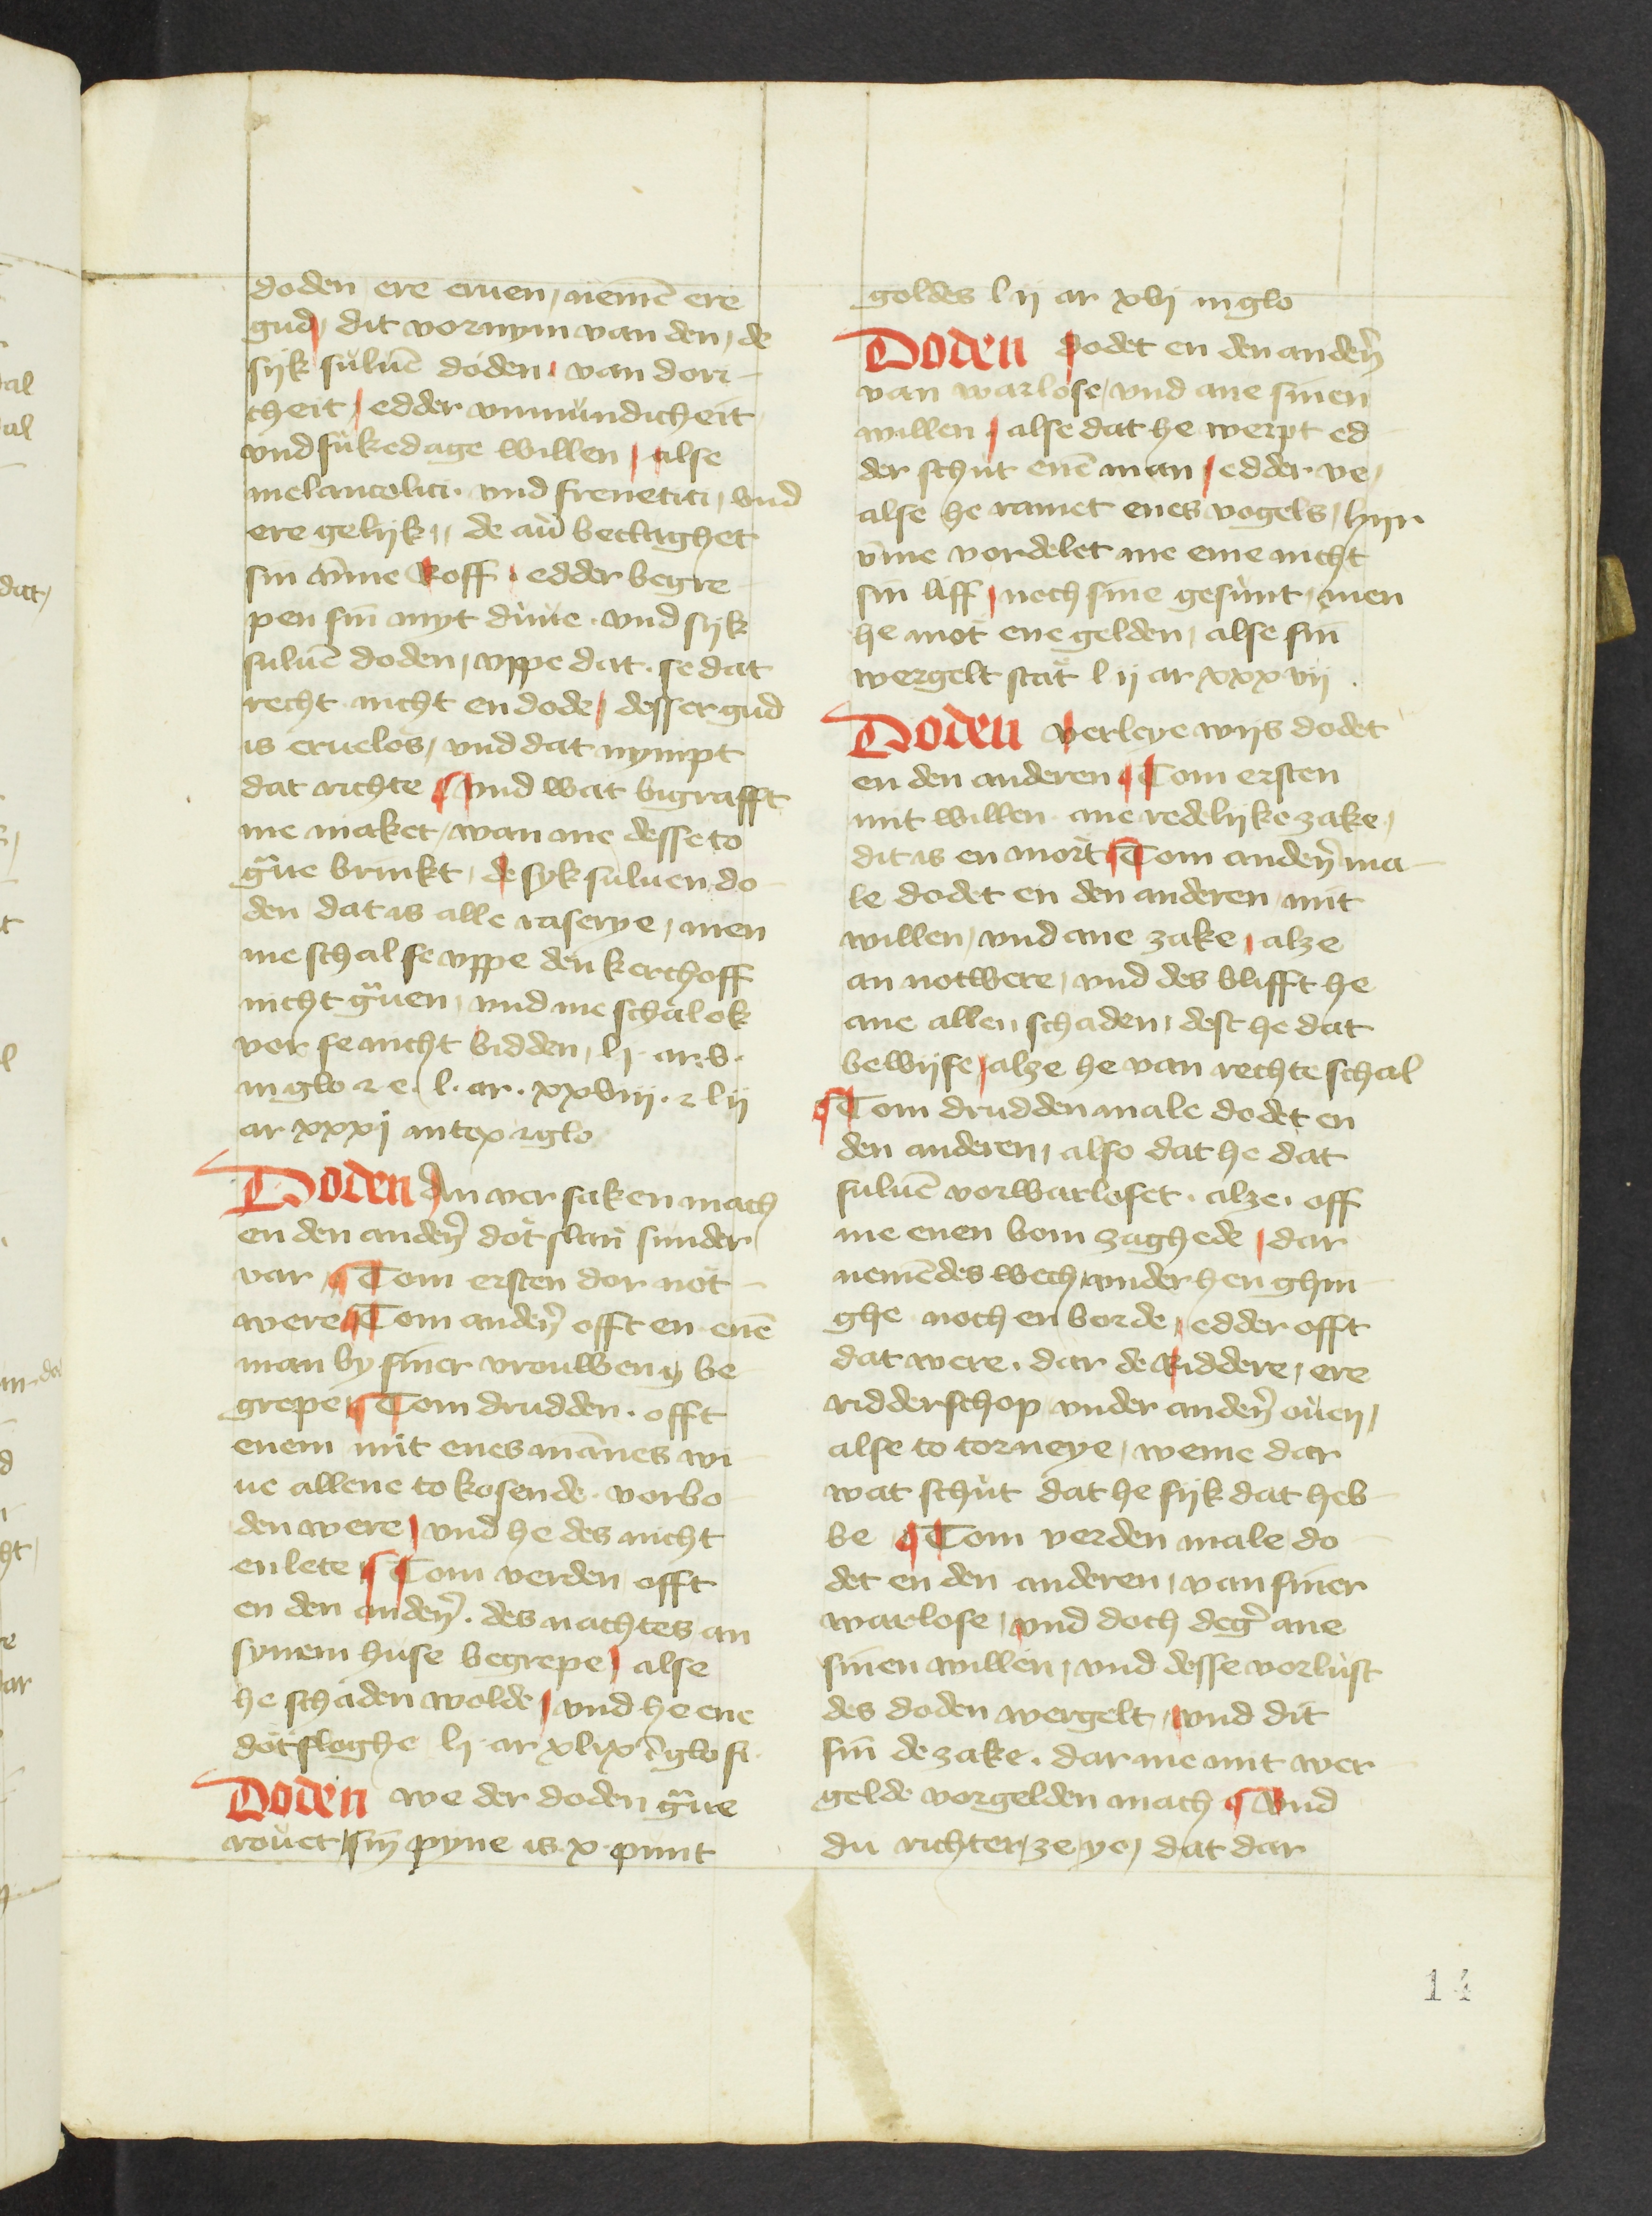 doden ere eruen, nemē ere
gud, dit vornym van den, de
sijk suluē doden, van dori-
cheit, edder vnmundicheit
vnd sukedage willen, alse
melancolici. vnd frenetici, vnd
ere gelijk,, de au͛ beclaghet
sin vm̄e Roff, edder begre
pen sin myt duute. vnd sijk
suluē doden, vppe dat. se dat
recht nicht en dode, desser gud
is eruelos, vnd dat nympt
dat richte ¶ Vnd wat bigrafft
me maket, wan me desse to
gͣue brinkt, de syk suluen do
den dat is alle raserye, men
me schal se vppe den kerchoff
nicht gͣuen, vnd me schal ok
vor se nicht bidden, l ij. ar. v.
in glo ⁊ e. l. ar. xxviij. ⁊ l ij
ar xxxj in tex ⁊ glo
Doden An ver saken mach
en den anden͛ dot slan sunder
var, ¶ Tom ersten dor not-
were ¶ Tom anden͛ offt en enē
man by siner vrouwen be
grepe, ¶ Tom drudden. offt
enem mit enes mānes wi-
ue allene to kosende. vorbo
den were, vnd he des nicht
en lete ¶ Tom verden offt
en den anden͛. des nachtes an
synem huse begrepe, alse
he schaden wolde, vnd he ene
dot sloghe l ij ar xlix ī glo fi.
Doden we der doden gͣue
rouet, sin pyne is. x. punt
goldes l ij ar xvj in glo
Doden dodet en den anden͛
van warlose, vnd ane sinen
willen, alse dat he werpt ed
der schut enē man, edder ve,
alse he ramet enes vogels, hijr
vm̄e vordelet me eme nicht
sin liff, noch sine gesunt, men
he mot ene gelden, alse sin
wergelt stat l ij ar xxxvij.
Doden verleye wijs dodet
en den anderen ¶ Tom ersten
mit willen. ane redelijke zake,
dit is en mort ¶ Tom anden͛ ma-
le dodet en den anderen mit
willen, vnd ane zake, alze
an notwere, vnd des blifft he
ane allen schaden, dest he dat
bewijse, alze he van rechte schal
¶ Tom drudden male dodet en
den anderen, also dat he dat
suluē vorwarloset. alze. off
me enen bom zaghede, dar
nemēdes wech, vnder hen ghin
ghe noch en borde, edder offt
dat were. dar de Riddere, ere
ridderschop vnder anden͛ ouen,
alse to torneye, weme dar
wat schut dat he sijk dat heb
be ¶ Tom verden male do
det en den anderen, van siner
warlose, vnd doch deg͛ ane
sinen willen, vnd desse vorlust
des doden wergelt, vnd dit
sin de zake. dar me mit wer
gelde vorgelden mach ¶ Vnd
du richter, ze ye, dat dar
14